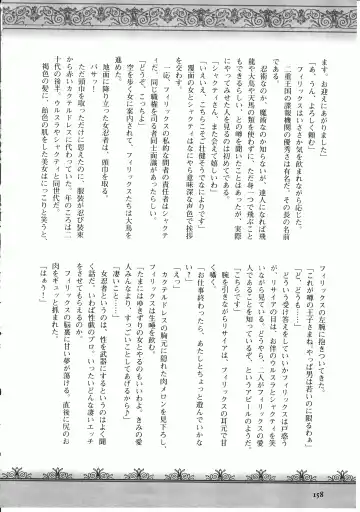 ます。お迎えにあがりました」
「あ、うん、よろしく頼む」
フィリックスはいささか気を飲まれながら応じた。
二重王国の諜報機関の優秀さは有名だ。その長の名前
である。
忍術なのか、魔術なのか知らないが、達人になれば飛
龍や大鳥や天馬の類を使わずに、ただ身一つで飛ぶこと
もできるらしい、という噂を聞いたことはあったが、実際
にやってみせた人を見るのは初めてである。
「シャクティさん、また会えて嬉しいわ」
「いえいえ、こちらこそご健そうでなによりです」
覆面の女とシャクティはなにやら意味深な声色で挨拶
を交わす。
一応、フィリックスの私的な間者の責任者はシャクテ
ィだ。同じ職種を司る者同士面識があったらしい。
「どうぞ、こっちよ」
空を歩く女に案内されて、フィリックスたちは大鳥を
進めた。
地面に降り立った女忍者は、頭巾を取る。
バサッ!
ただ頭巾を取っただけに思えたのに、服装が忍び装束
から赤いカクテルドレスに代わっていた。年のころは二
十代の後半。ウルスラやシャクティと同世代だ。
褐色の髪に、飴色の肌をした美女はにっこりと笑うと、
フィリックスの左腕に抱きついてきた。
「これが噂の王子さまね。やっぱ男は若いのに限るわぁ」
どういう受け答えをしていいかフィリックスは戸惑う
が、リサイアの目は、お伴のウルスラとシャクティを笑
いながら見ている。どうやら、二人がフィリックスの愛
人であることを知っているぞ、というアピールのようだ。
「こちらですよ」
腕を引きながらリサイアは、フィリックスの耳元で甘
く囁く。
「お仕事終わったら、あたしとちょっと遊んでいかな
い?」
「えっ」
カクテルドレスの胸元に隠れた肉メロンを見下ろし、
フィリックスは生唾を飲む。
「たまにはゆきずりの女とやるのもいいわよ。きみの愛
人みんなより、凄いこといーとしてあげるから♪」
「凄いこと…」
女忍者というのは、性を武器にするというのはよく聞
く話だ。いわば性戯のプロ。いったいどんな凄いエッチ
をさせてもらえるのか。
フィリックスの脳裏に甘い夢が蕩ける。直後に尻のお
肉をギュッと抓まれた。
「はぁう!」
158